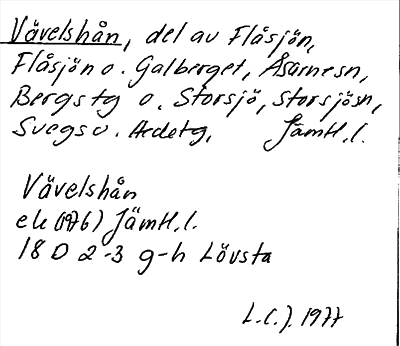 Vävelshån, del av Flåsjön,
Flåsjön o. Galberget, Åsarnesn,
Bergstg o. Storsjö, Storsjösn,
Svegs o. Ardetg, Jämtl.
Vävelshån
ek (1976) Jämtl.
18 D 2-3 g-h Lövsta
L.C.J. 1977